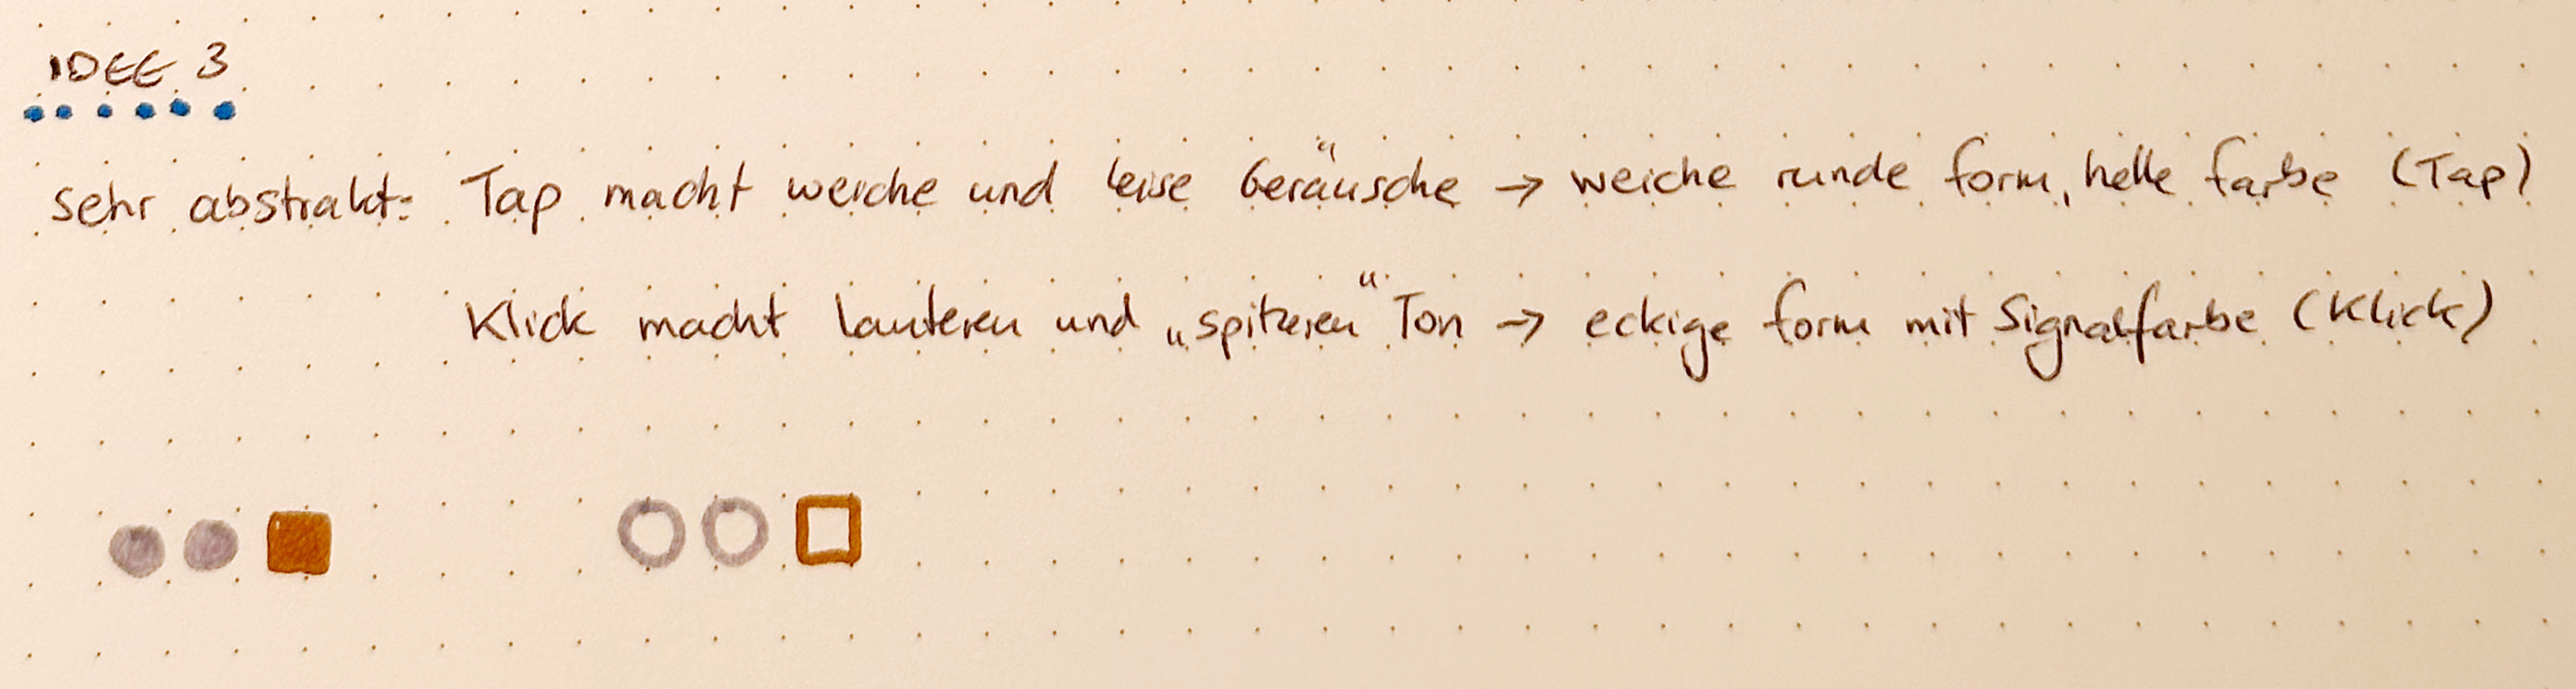 IDEE 3
sehr abstrakt: Tap macht weiche und leise Geräusche → weiche runde form, helle farbe (Tap)
Klick macht lauteren und „spitzeren“ Ton → eckige form mit Signalfarbe (Klick)